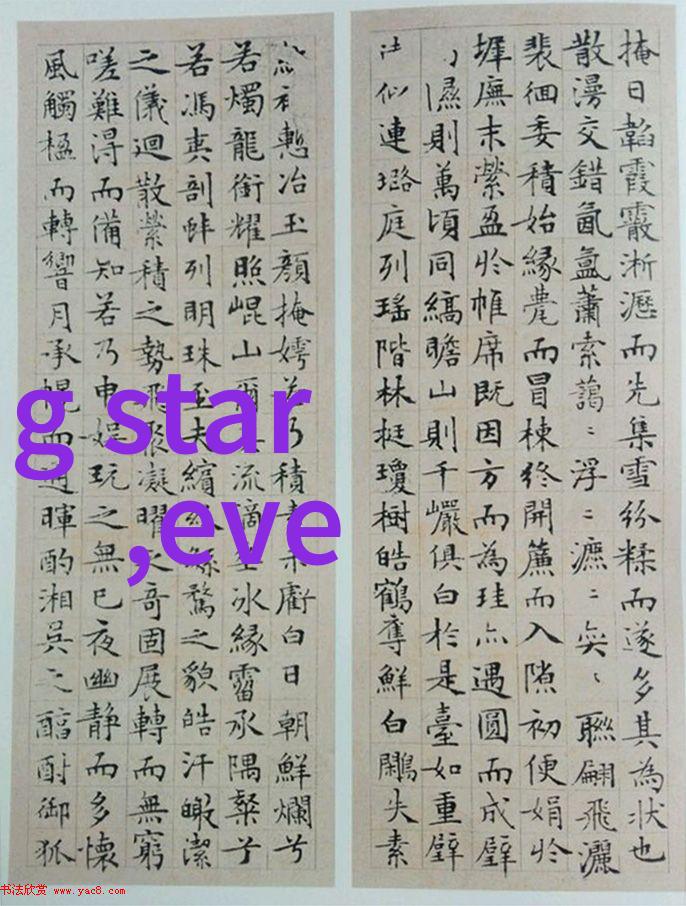 掩日韜霞霰淅瀝而先集雪紛糅而遂多其為狀也
散漫交錯氤氳蕭索藹〻浮〻瀌〻奕〻聯翩飛灑
裴徊委積始緣甍而冒棟終開簾而入隙初便娟於
墀廡末縈盈於帷席既因方而為珪亦遇圓而成璧
隰則萬頃同縞瞻山則千巖俱白於是臺如重璧
似連璐庭列瑤階林挺瓊樹皓鶴奪鮮白鷴失素
慙冶玉顏掩嫮若乃積素未虧白日朝鮮爛兮
若燭龍銜耀照崐山爾流滴垂冰緣霤承隅粲兮
若馮夷剖蚌列明珠至夫繽紛繁騖之貌皓汗皦潔
之儀迴散縈積之勢飛聚凝曜之奇固展轉而無窮
嗟難得而備知若乃申娛玩之無已夜幽静而多懷
風觸楹而轉響月承幌而通暉酌湘吳之醇酎御狐
g star
,eve
书法欣赏 www.yac8.com